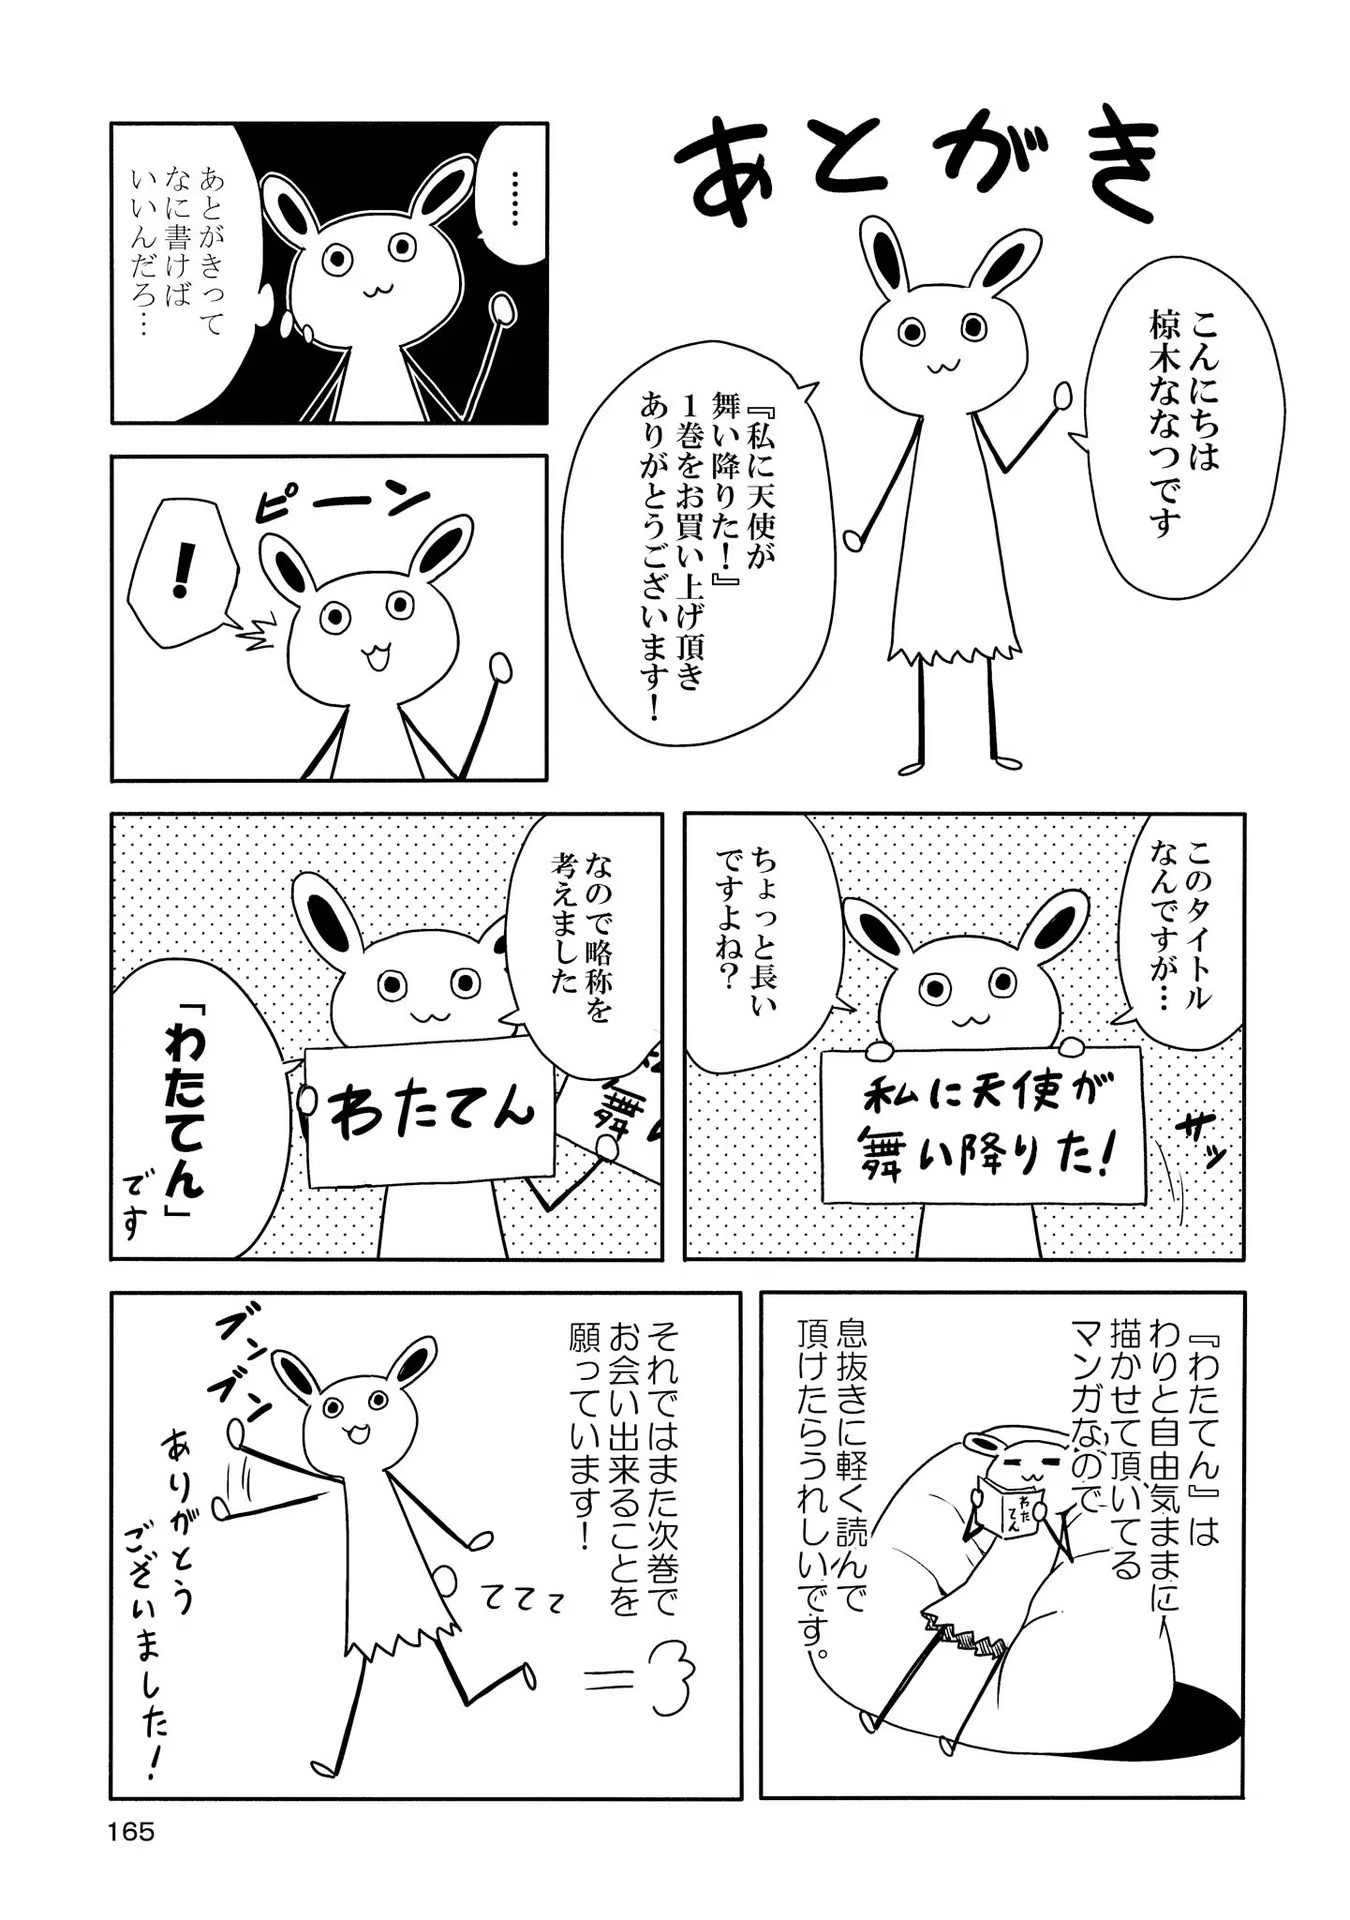 あとがき
こんにちは
椋木ななつです
『私に天使が
舞い降りた！』
１巻をお買い上げ頂き
ありがとうございます！
……
あとがきって
なに書けば
いいんだろ…
ピーン
！
このタイトル
なんですが…
ちょっと長い
ですよね？
私に天使が
舞い降りた！
サッ
なので略称を
考えました
わたてん
舞い
「わたてん」
です
『わたてん』は
わりと自由気ままに
描かせて頂いてる
マンガなので
息抜きに軽く読んで
頂けたらうれしいです。
わた
てん
それではまた次巻で
お会い出来ることを
願っています！
ブンブン
ててて
ありがとう
ございました！
165